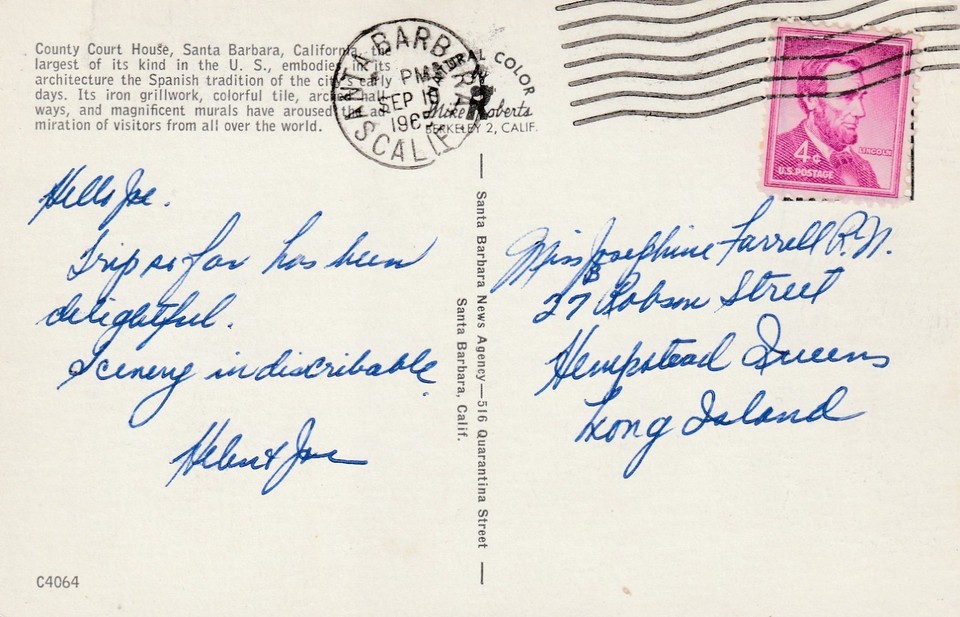 County Court House, Santa Barbara, California, the
largest of its kind in the U. S., embodies in its
architecture the Spanish tradition of the city's early
days. Its iron grillwork, colorful tile, arched hall-
ways, and magnificent murals have aroused the ad-
miration of visitors from all over the world.
SANTA BARBARA
PM
SEP 10
CALIF.
NATURAL COLOR
Mike Roberts
BERKELEY 2, CALIF.
4¢
LINCOLN
U.S. POSTAGE
Hello Joe.
Trip so far has been
delightful.
Scenery indiscribable.
Helen & Joe
Santa Barbara News Agency—516 Quarantina Street
Santa Barbara, Calif.
Miss Josephine Farrell R.N.
27 Robson Street
Hempstead Queens
Long Island
C4064